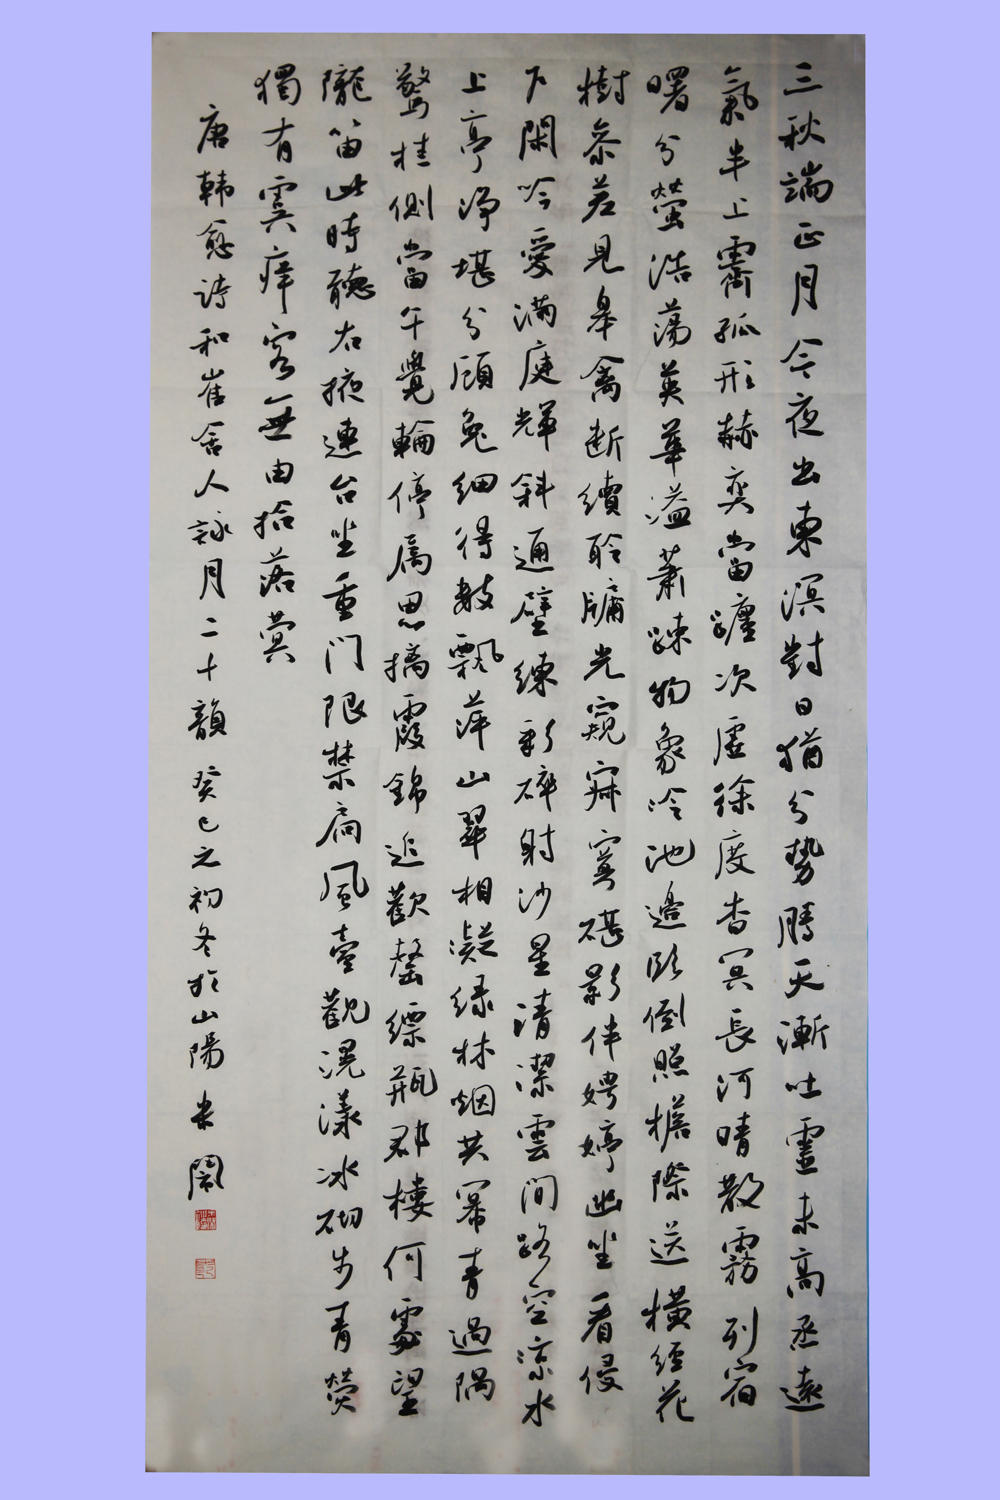 三秋端正月今夜出東溟對日猶分勢騰天漸吐靈未高烝遠
氣半上霽孤形赫奕當躔次虛徐度杳冥長河晴散霧列宿
曙分螢浩蕩英華溢蕭踈物象冷池邊臨倒照檐際送橫經花
樹參差見皋禽斷續聆牖光窺寂寞碪影伴娉婷幽坐看侵
戶閑吟愛滿庭輝斜通壁練彩碎射沙星清潔雲間路空涼水
上亭淨堪分顧兔細得數飄萍山翠相凝綠林烟共冪青過隅
驚桂側當午覺輪停属思摛霞錦追歡罄縹瓶郡樓何處望
隴笛此時聽右掖連台坐重門限禁扃風臺觀滉漾冰砌步青熒
獨有虞庠客無由拾落蓂
唐韓愈詩和崔舍人詠月二十韻 癸巳之初冬於山陽